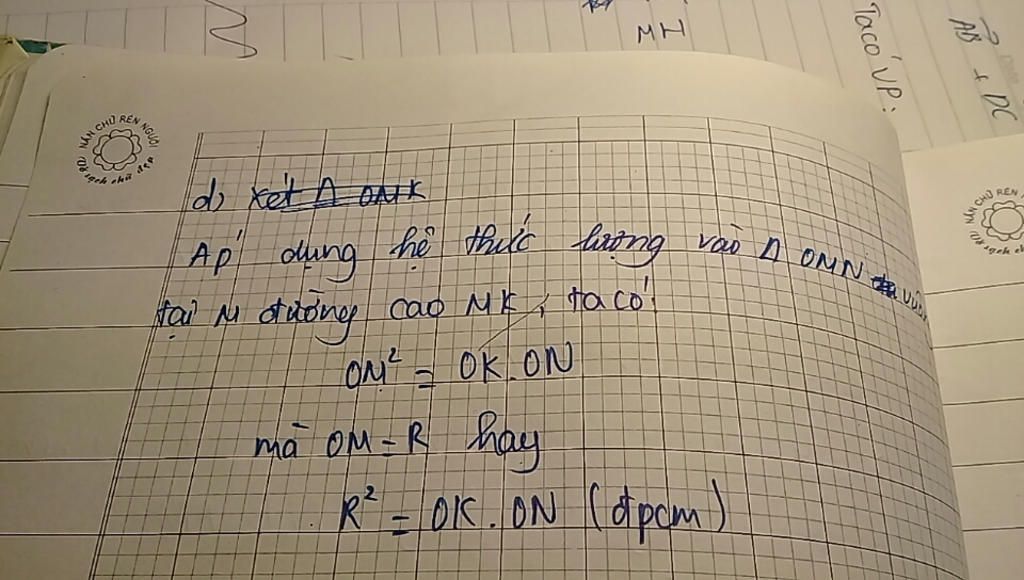 MI
Ta có VP:
AB + DC
NẮN CHỮ RÈN NGƯỜI
Vở sạch chữ đẹp
NẮN CHỮ RÈN
d) xét Δ OMK
Áp dụng hệ thức lượng vào Δ OMN vuông
tại M đường cao MK, ta có:
OM² = OK.ON
mà OM = R hay
R² = OK.ON (đpcm)